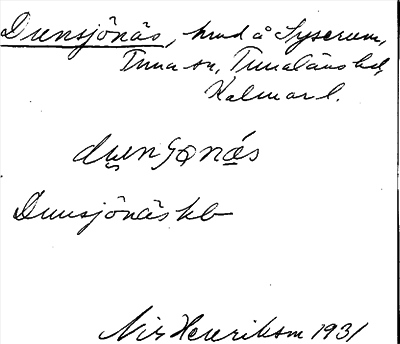 Dunsjönäs, hmd å Syserum,
Tuna sn, Tunaläns hd,
Kalmar l.
dunʃǫnä́s
Dunsjönäs kb
Nis Henrikson 1931